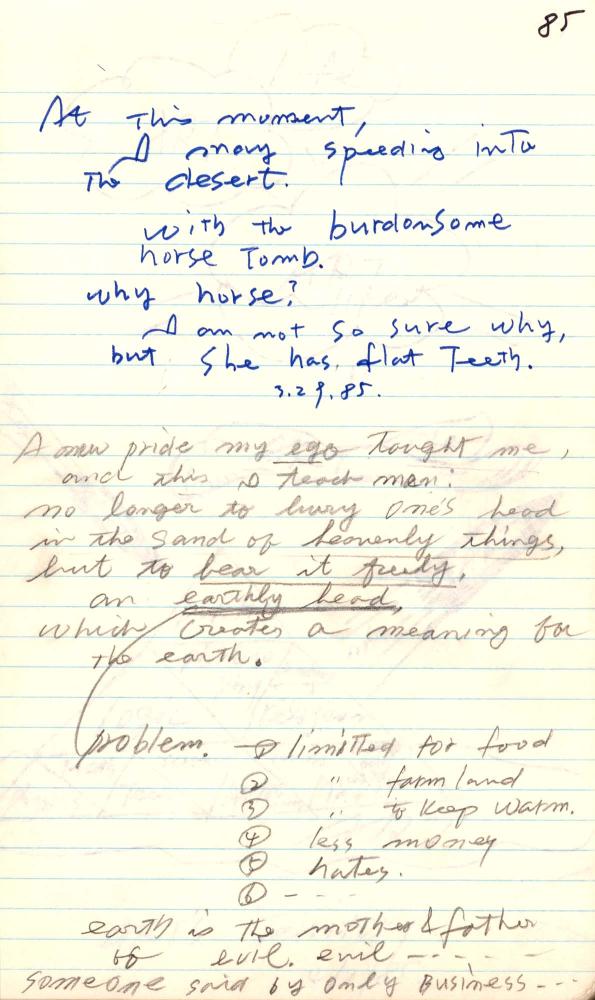 85
At This moment,
I many speeding inTo
The desert.
with the burdonsome
horse Tomb.
why horse?
I am not so sure why,
but she has flat Teeth.
3.29.85.
A new pride my ego taught me,
and this I teach men:
no longer to bury one's head
in the sand of heavenly things,
but to bear it freely,
an earthly head,
which creates a meaning for
the earth.
problem. ① limitted for food
② " farm land
③ " to keep warm.
④ less money
⑤ hates.
⑥ - - - -
earth is the mother & father
of evil. evil - - - - -
someone said by only Business - - -